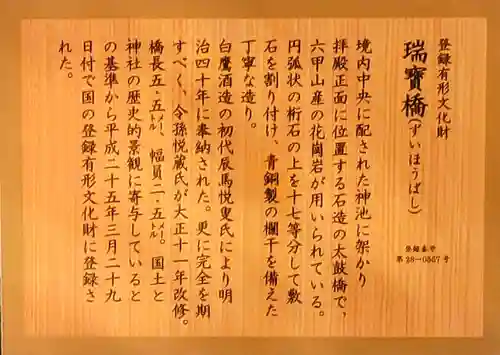 登録有形文化財
瑞寳橋(ずいほうばし)
登録番号
第28-0567号
境内中央に配された神池に架かり
拝殿正面に位置する石造の太鼓橋で、
六甲山産の花崗岩が用いられている。
円弧状の桁石の上を十七等分して敷
石を割り付け、青銅製の欄干を備えた
丁寧な造り。
白鷹酒造の初代辰馬悦叟氏により明
治四十年に奉納された。更に完全を期
すべく、令孫悦蔵氏が大正十一年改修。
橋長五・五㍍、幅員二・五㍍。国土と
神社の歴史的景観に寄与していると
の基準から平成二十五年三月二十九
日付で国の登録有形文化財に登録さ
れた。